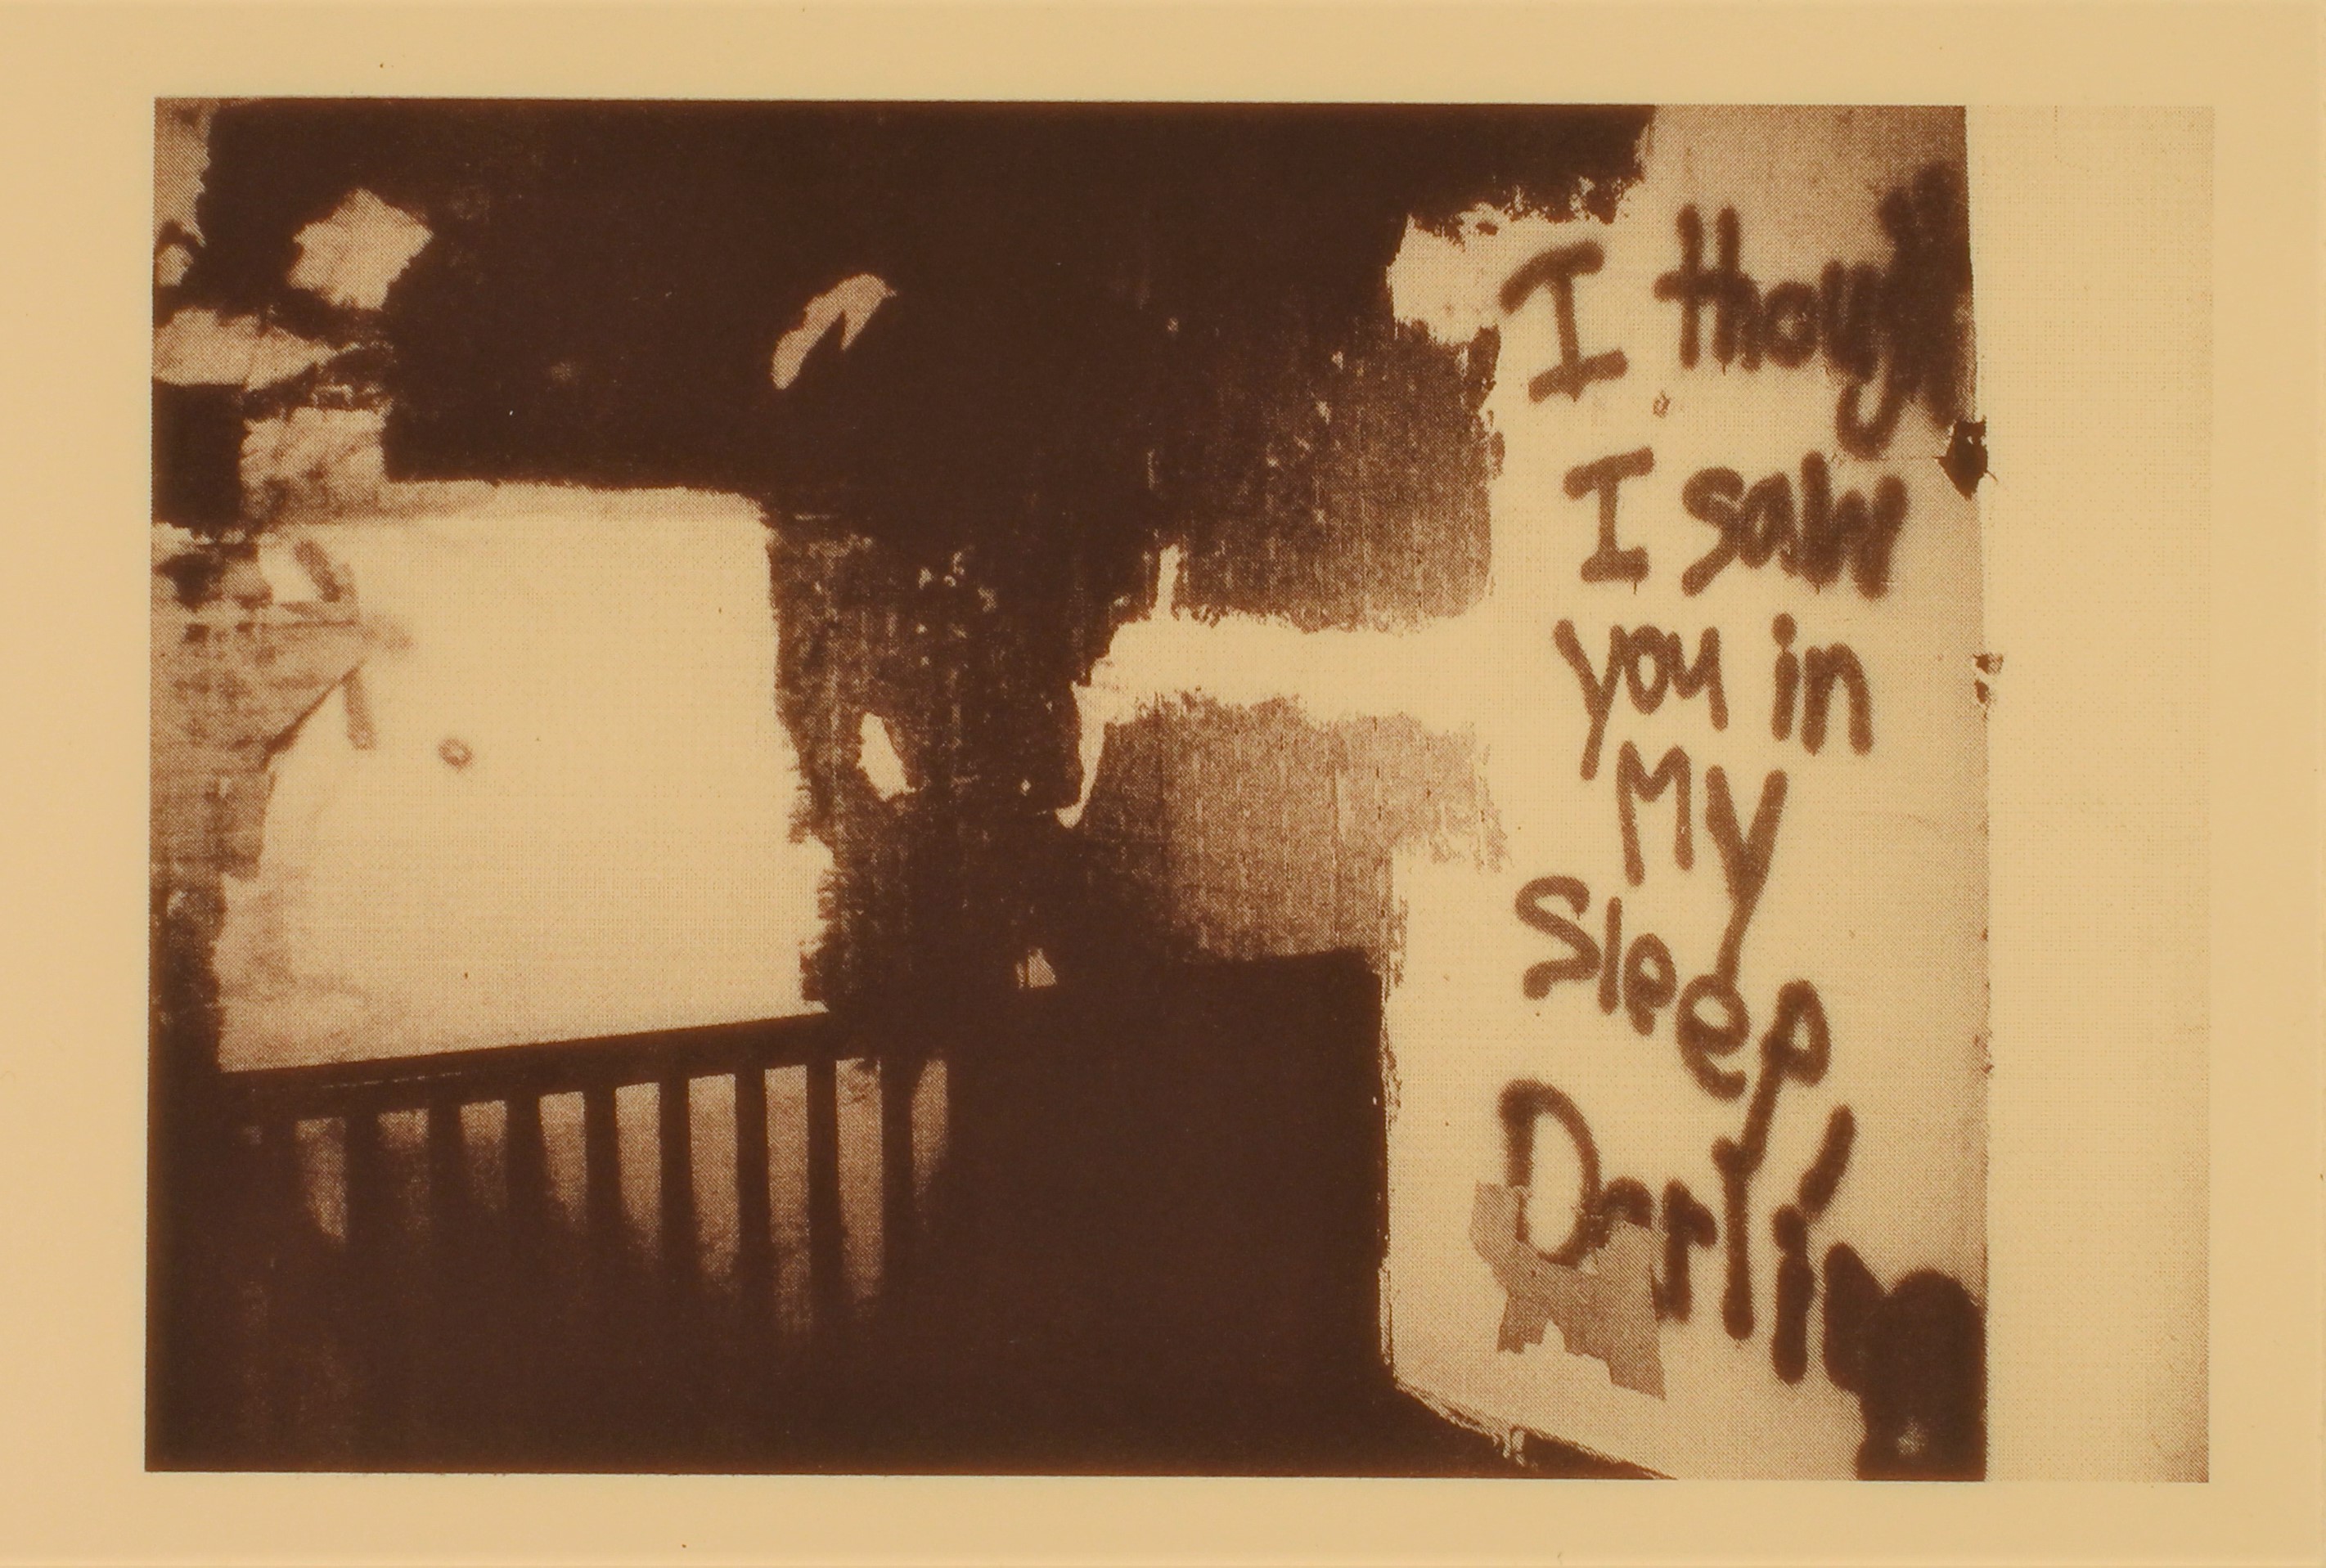 I thought
I saw
you in
My
Sleep
Darling